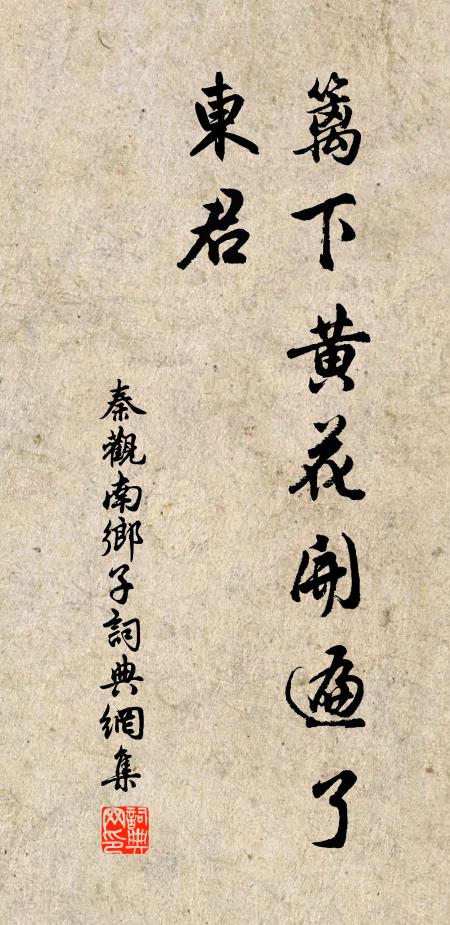 籬下黃花開遍了
東君
秦觀南鄉子詞典網集
詞典
网印